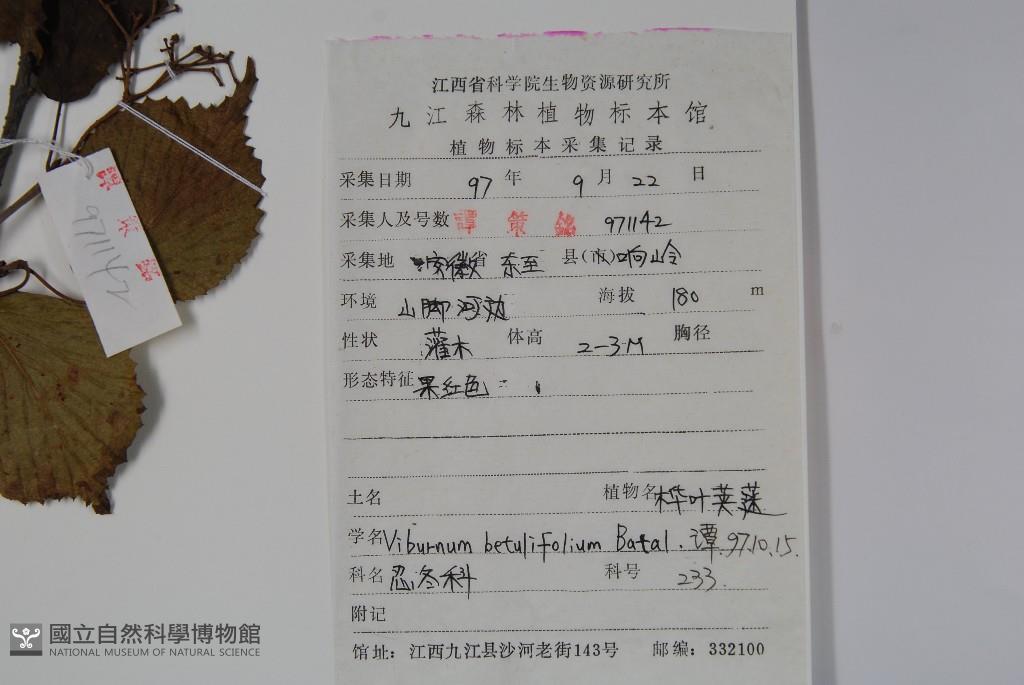 江西省科学院生物资源研究所
九江森林植物标本馆
植物标本采集记录
采集日期 97 年 9 月 22 日
采集人及号数 譚策銘 971142
采集地 安徽省 东至 县(市)响山岭
环境 山脚河边 海拔 180 m
性状 灌木 体高 2-3M 胸径
形态特征 果红色
土名 植物名 桦叶荚蒾
学名 Viburnum betulifolium Batal. 谭 97.10.15.
科名 忍冬科 科号 233.
附记
馆址: 江西九江县沙河老街143号 邮编: 332100
971142
國立自然科學博物館
NATIONAL MUSEUM OF NATURAL SCIENCE